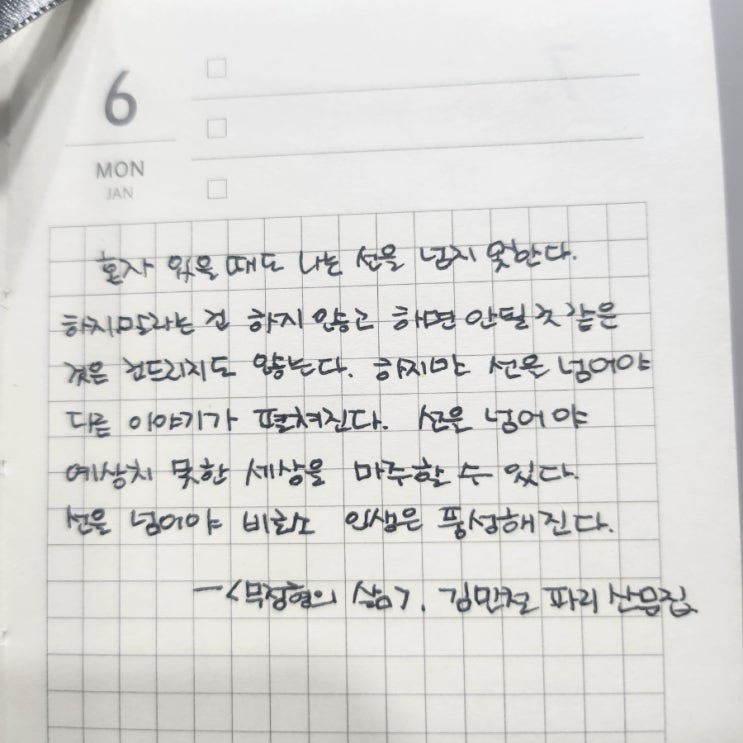 6
MON
JAN
혼자 있을 때도 나는 선을 넘지 못한다.
하지말라는 건 하지 않고 해면 안될 것 같은
것은 건드리지도 않는다. 하지만 선을 넘어야
다른 이야기가 펼쳐진다. 선을 넘어야
예상치 못한 세상을 마주할 수 있다.
선을 넘어야 비로소 인생은 풍성해진다.
—<무정형의 삶>, 김민철 파리 산문집